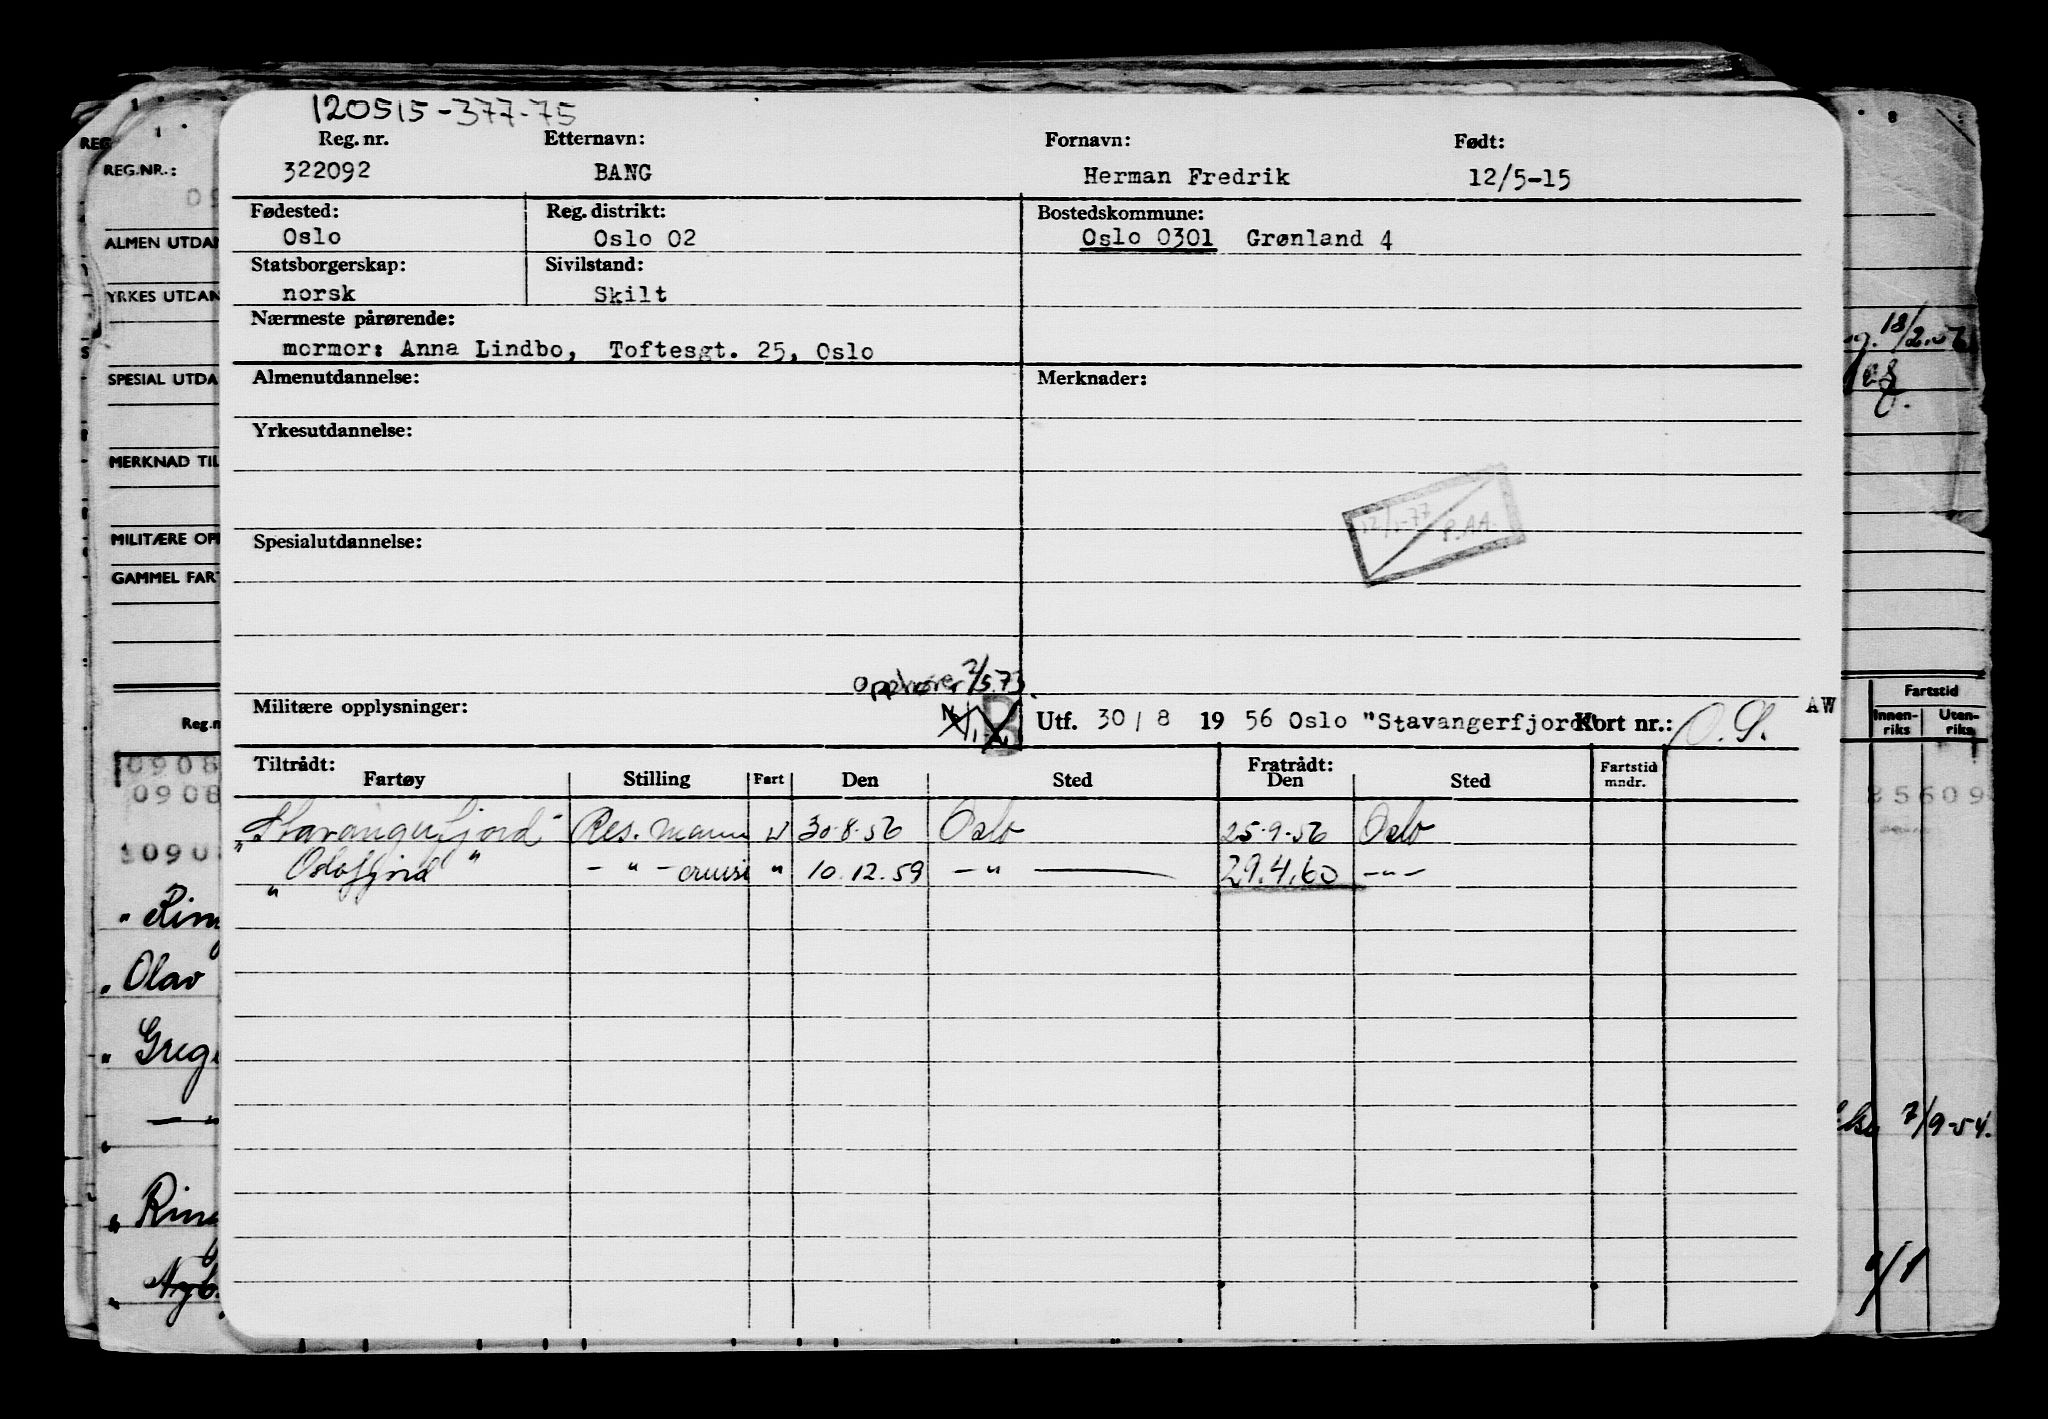 120515-377-75
Reg. nr. Etternavn: Fornavn: Født:
322092 BANG Herman Fredrik 12/5-15
Fødested: Reg. distrikt: Bostedskommune:
Oslo Oslo 02 Oslo 0301 Grønland 4
Statsborgerskap: Sivilstand:
norsk Skilt
Nærmeste pårørende:
mormor: Anna Lindbo, Toftesgt. 25, Oslo
Almenutdannelse: Merknader:
Yrkesutdannelse:
12/1-77 P.AA.
Spesialutdannelse:
opphører 2/5.73.
Militære opplysninger: Utf. 30 / 8 19 56 Oslo "Stavangerfjord" Kort nr.: O.S.
AW
Tiltrådt: Fratrådt:
Fartøy Stilling Fart Den Sted Den Sted Fartstid mndr.
"Stavangerfjord" Res. mann u 30-8-56 Oslo 25-9-56 Oslo
"Oslofjord" - " - cruise " 10.12.59 - " - 29.4.60 - " -
REG
REG.NR.:
ALMEN UTDAN
YRKES UTDAN
SPESIAL UTDA
MERKNAD TIL
MILITÆRE OPP
GAMMEL FART
Reg.n
0908
0908
0908
" Ring
" Olav
" Grege
— "
" Ring
" Nyb
8
18/2.56
Fartstid
Innen-riks Uten-riks
25609
7/9-54.